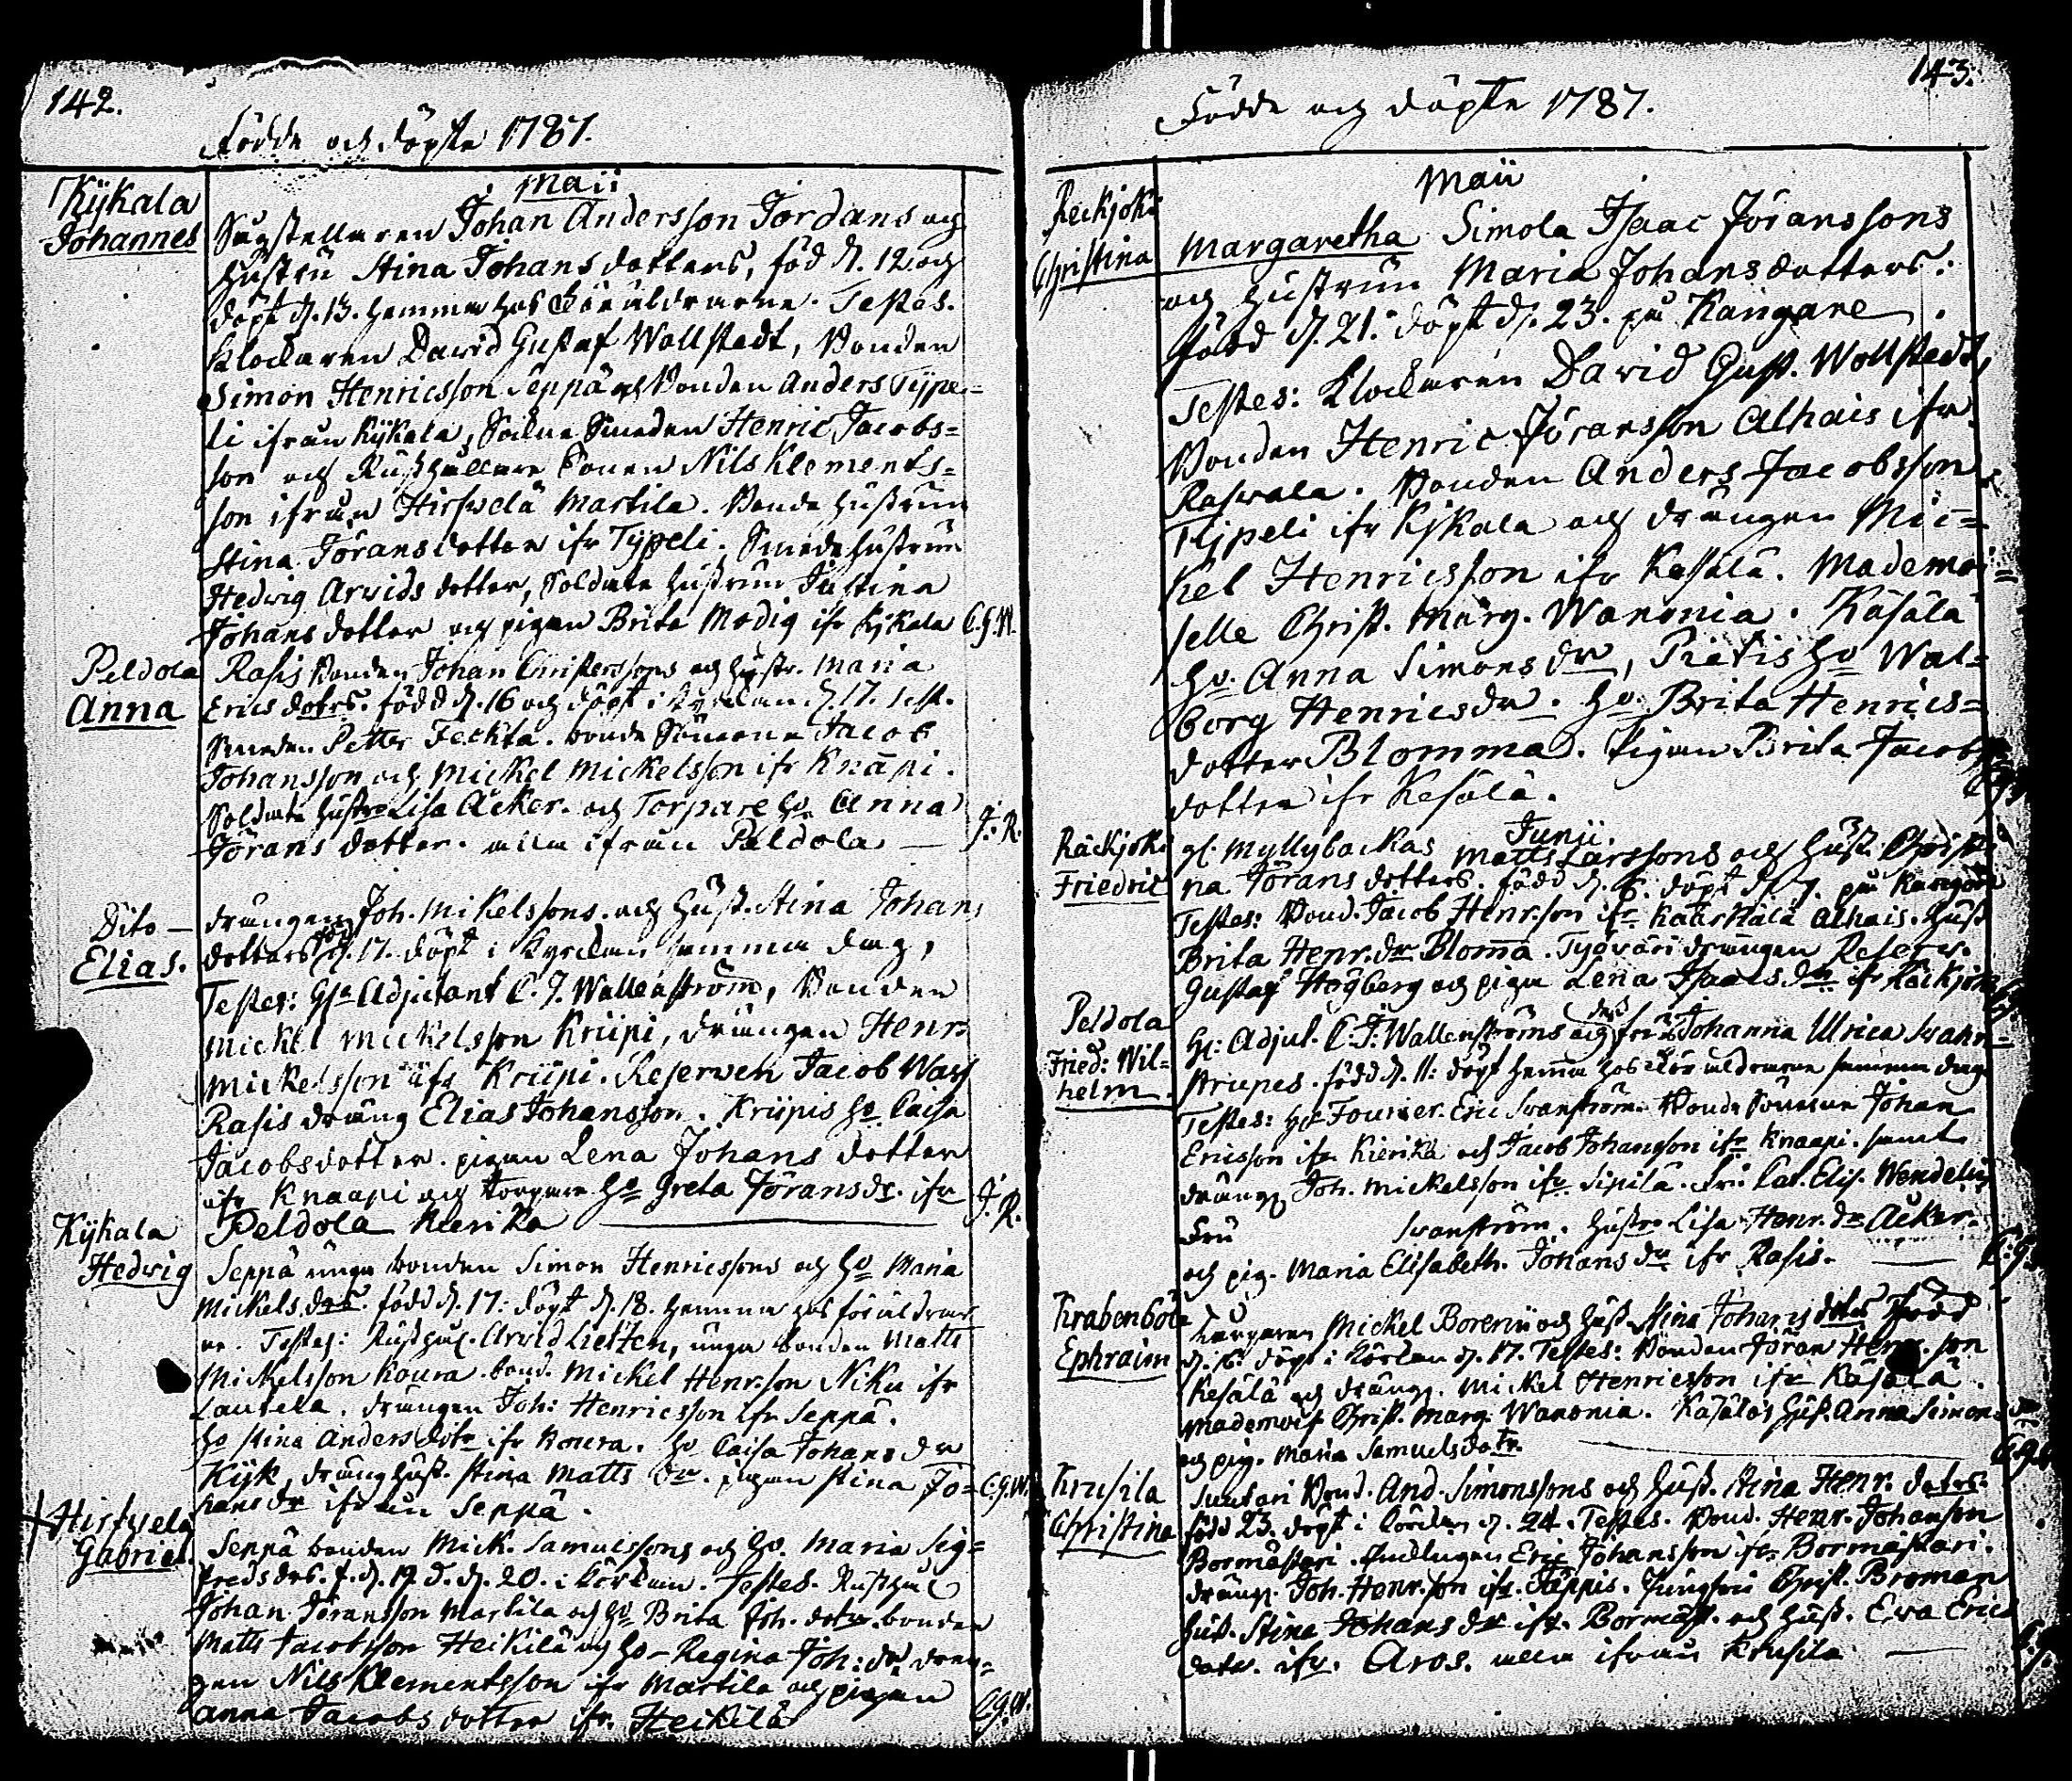 142.
Födde och döpte 1787.
Maii
Kÿkala
Johannes
Johan Andersson Jordans och
hustru Stina Johans dotters, föd d. 12. och
döpt d. 13. hemma hos föräldrarne. Testes.
Klockaren David Gustaf Wallstedt, Bonden
Simon Henricsson Seppä och Bonden Anders Tÿpe=
li ifrån Kÿkala, Smeden Henric Jacobs=
son och Rusthållare Sonen Nils Klements=
son ifrån Hirfvelä Martila. Bonde hustrun
Stina Jörans dotter ifr Tÿpeli. Smeds hustrun
Hedvig Arvids dotter, Soldate hustrun Justina
Johans dotter och pigan Brita Modig ifr Kÿkala C.G.W.
Peldola
Anna
Rasis Bonden Johan Christerssons och hustr. Maria
Erics dotrs. född d. 16 och döpt i kyrckan d. 17. test.
Smeden Petter Feckta. bonde Sönerne Jacob
Johansson och Mickel Mickelsson ifr Knapi.
Soldate hustr Lisa Acker. och Torpare ho Anna
Jörans dotter. alla ifrån Peldola — J. R.
Dito —
Elias.
drängen Joh. Mikelssons. och hust. Stina Johans
dotters föd d. 17. döpt i kyrckan samma dag,
Testes: Hr Adjutant C. J. Wallenström, Bonden
Mickel Mickelsson Kriipi, drängen Henr.
Mickelsson ifr Kriipi. Reserven Jacob Wass
Rasis dräng Elias Johansson. Kriipis ho Caisa
Jacobsdotter. pigan Lena Johans dotter
ifr Knaapi och torpare ho Greta Jöransdr. ifr
Peldola Kierika — J. R.
Kÿkala
Hedvig
Seppä unga bonden Simon Henricssons och ho Maria
Mickels drs. född d. 17: döpt d. 18. hemma hos föräldrar
ne. Testes: Rusthål. Arvid Lietzen, unga bonden Matts
Mickelsson Koura. bond. Mickel Henr.son Niku ifr
Lautela. drängen Joh: Henricsson ifr Seppä.
ho Stina Anders dotr ifr Koura. ho Caisa Johans dr
Kÿk, dräng hust. Stina Matts dr. pigan Stina Jo= C.G.W.
hans dr ifrån Seppä.
Hirfvelä
Gabriel
Seppä bonden Mick. Samuelssons och ho. Maria Sig=
freds drs. f. d. 19. d. d. 20. i körckan. Testes. Rusthål
Johan Jöransson Martila och ho Brita Joh. dotr. bonden
Matts Jacobsson Heikilä och ho Regina Joh: dr drän=
gen Nils Klementsson ifr Martila och pigan
Anna Jacobs dotter ifr. Heikilä C.G.W.
143.
Födde och döpte 1787.
Maii
Reckjoki
Christina
Margaretha Simola Isaac Jöranssons
och hustrun Maria Johans dotters:
född d. 21. döpt d. 23. på Kangare.
Testes: Klockaren David Gust. Wollstedt,
Bonden Henric Jöransson Alhais ifr
Raswala. Bonden Anders Jacobsson
Tÿpeli ifr Kÿkala och drängen Mic=
kel Henricsson ifr Kesälä. Mademoi=
selle Christ. Marg. Wanonia. Käsälä
ho. Anna Simons dr, Pietis ho Wal=
borg Henricsdr. ho Brita Henrics=
dotter Blomma. Pigan Brita Jacobs
dotter ifr Kesälä.
Junii.
Räckjoki
Friedric
Myllybackas Matts Larssons och hust. Christi
na Jörans dotters. född d. 6. döpt d. 7. på Kangare
Testes: Bond. Jacob Henr.son ifr Alhais. hust
Brita Henr. dr Bloma. Tyÿväri drängen Reserv.
Gustaf Högberg och pigan Lena Isaacs dr ifr Räckjoki
Peldola
Fried: Wil=
helm.
Hr: Adjut. C. J: Wallenströms och fru Johanna Ulrica Svahn=
strupes. född d. 11: döpt hemma hos föräldrarne samma dag
Testes: Hr Fourier Eric Svanström. Bonde Sönerne Johan
Ericsson ifr Kierika och Jacob Johansson ifr Knaapi. samt
dräng. Joh. Mickelsson ifr Sipilä. Fru Cat. Elis. Wendelia
Fru Svanström. hustr Lisa Henr. dr Acker.
och pig. Maria Elisabeth. Johans dr ifr Rasis. —
Krabenböle
Ephraim
Torparen Mickel Borenii och hust. Stina Johans dotrs född
d. 16. döpt i körkan d. 17. Testes: Bonden Jöran Henr. son
Kesälä och dräng. Mickel Henricsson ifr Käsälä.
Mademois Christ. Marg. Wanonia. Käsälä hust. Anna Simons dr
och pig. Maria Samuelsdotr.
Krusila
Christina
Suutari Bond. And. Simonssons och hust. Stina Henr. dotrs.
född 23. döpt i körckan d. 24. Testes. Bond. Henr. Johansson
Bormästari. Eric Johansson ifr Bormästari.
dräng. Joh. Henr.son ifr. Jäppis. Jungfru Christ. Broman
hust. Stina Johans dr ifr. Bormäst. och hust. Ewa Erics
dotr. ifr. Aros. alla ifrån Krusila —